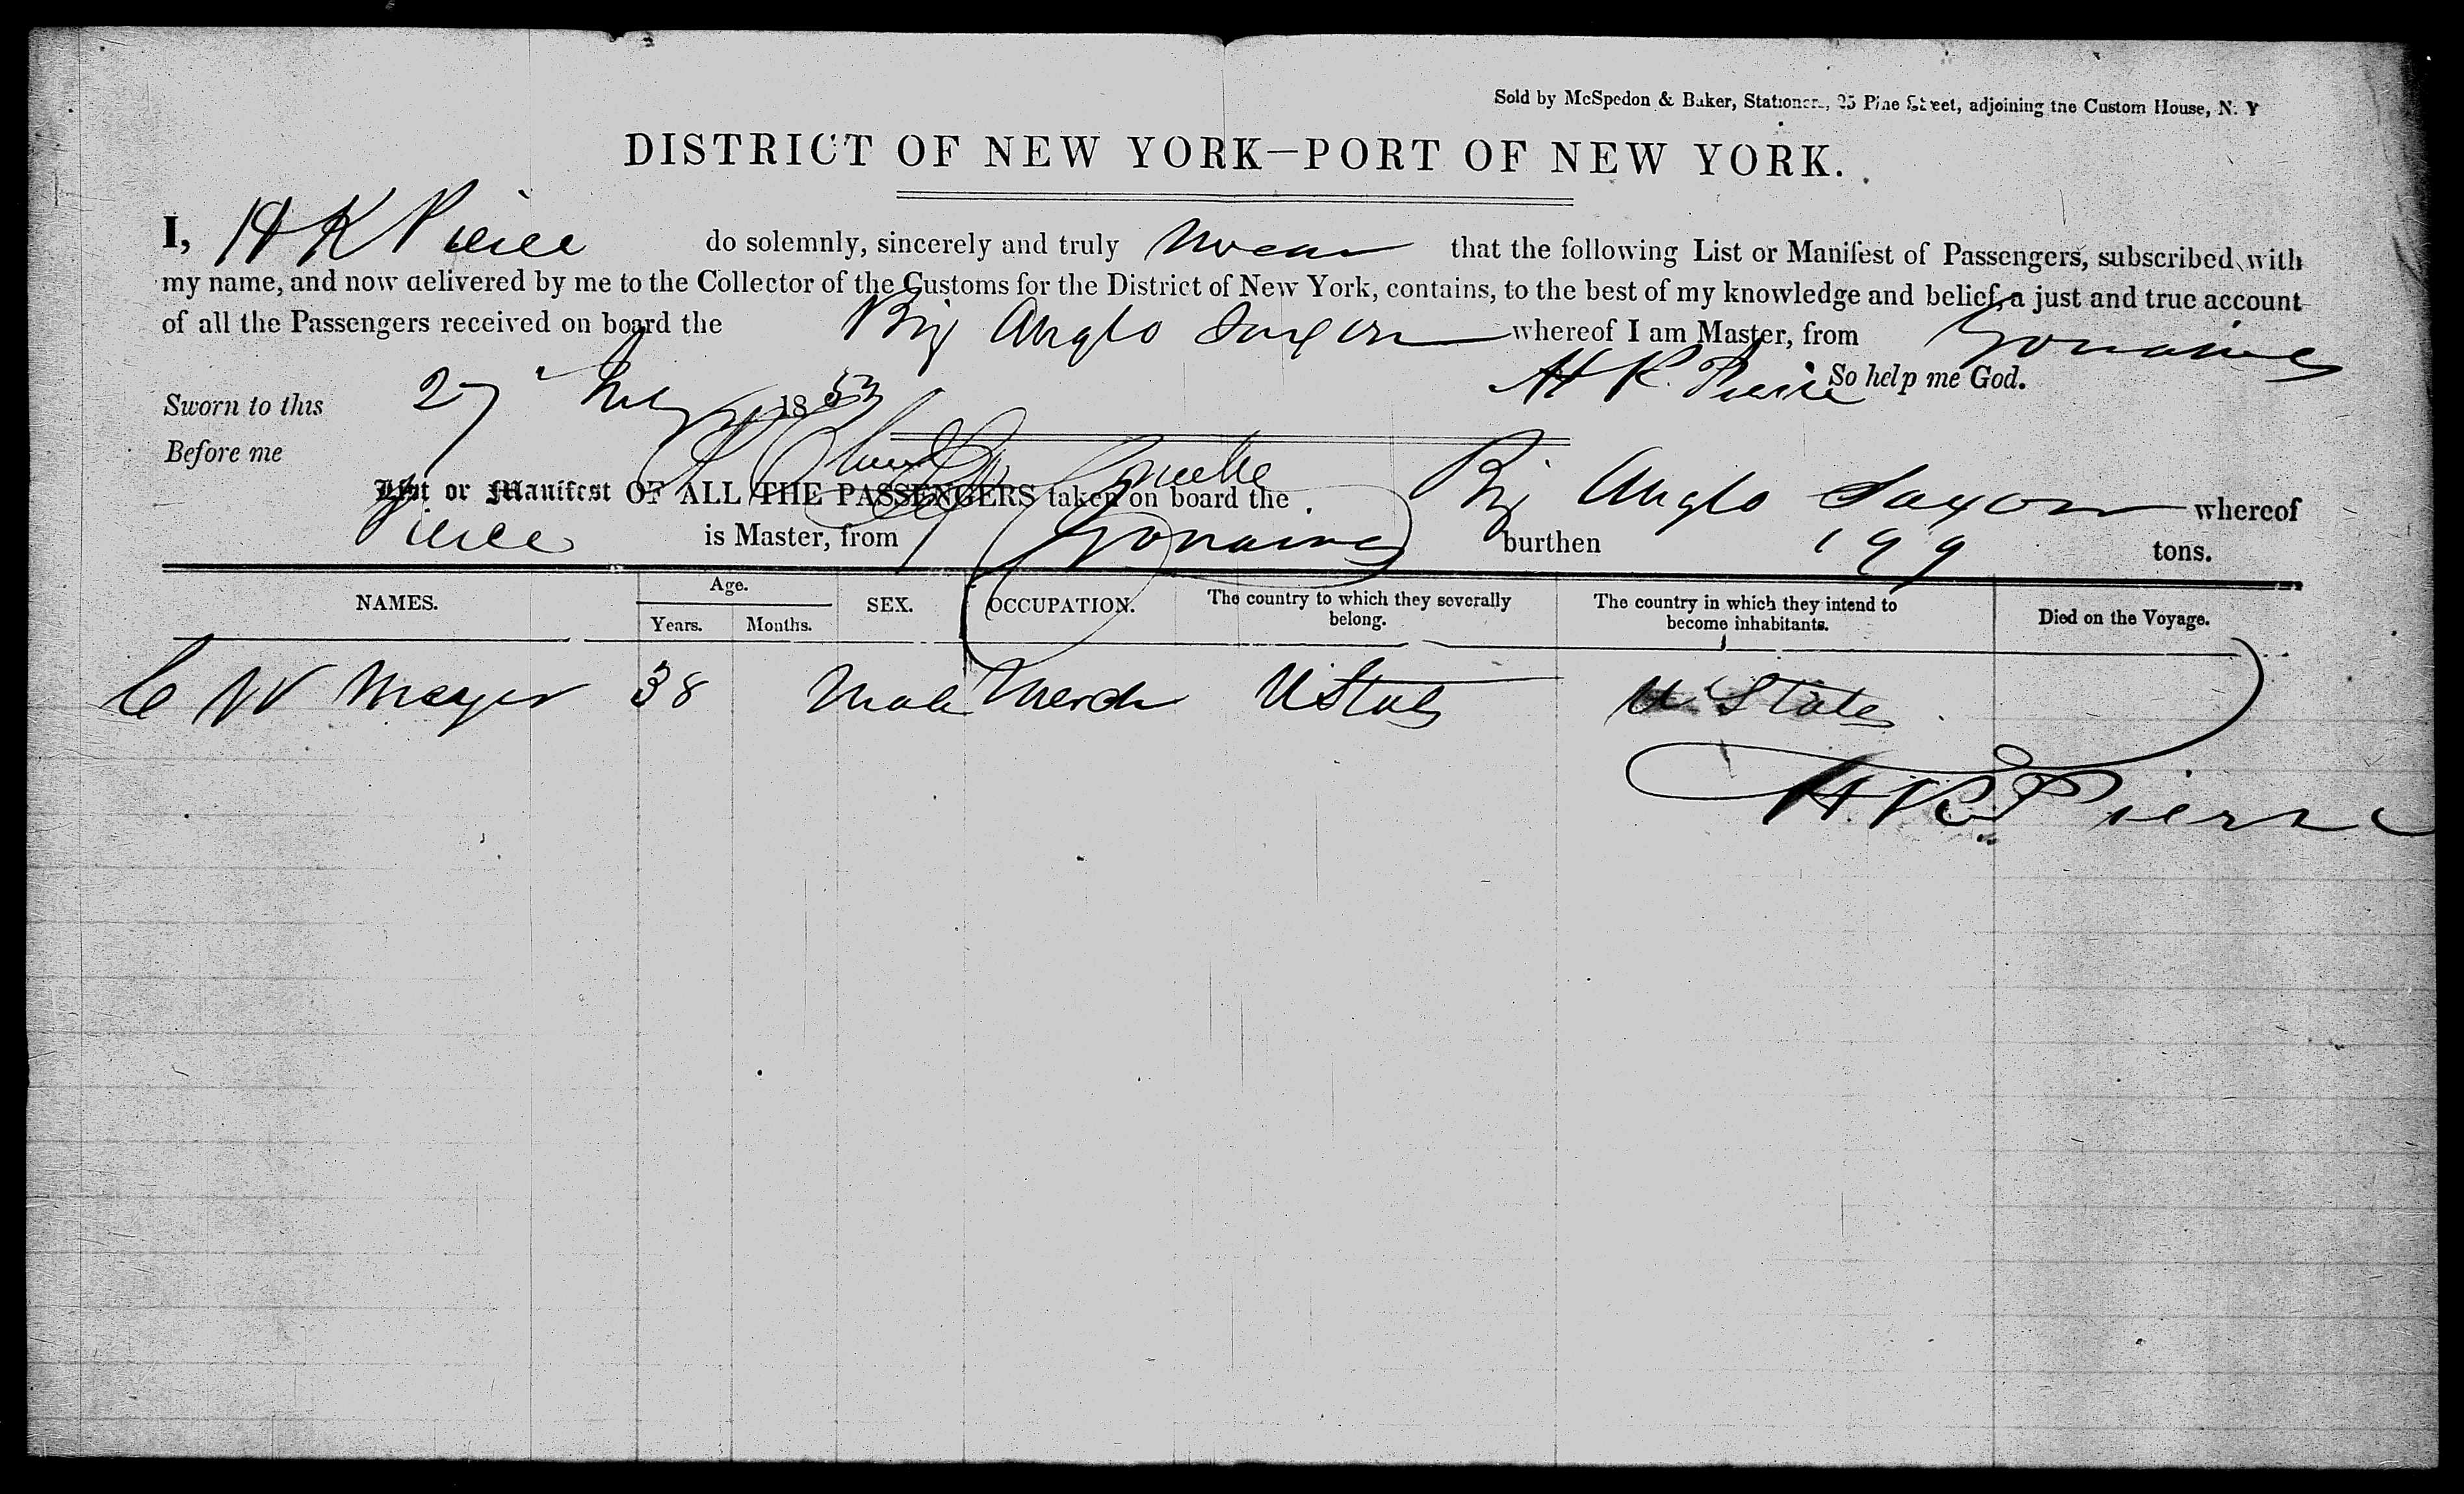 Sold by McSpedon & Baker, Stationers, 25 Pine Street, adjoining the Custom House, N. Y
DISTRICT OF NEW YORK—PORT OF NEW YORK.
I, H K Pierce do solemnly, sincerely and truly swear that the following List or Manifest of Passengers, subscribed with
my name, and now delivered by me to the Collector of the Customs for the District of New York, contains, to the best of my knowledge and belief, a just and true account
of all the Passengers received on board the Brig Anglo Saxon whereof I am Master, from Gonaives
So help me God.
H K. Pierce
Sworn to this 27 1853
Before me
List or Manifest OF ALL THE PASSENGERS taken on board the Brig Anglo Saxon whereof
Pierce is Master, from Gonaives burthen 199 tons.
NAMES. Age. Years. Months. SEX. OCCUPATION. The country to which they severally belong. The country in which they intend to become inhabitants. Died on the Voyage.
C W Meyer 38 Male Merch U States U States
H K Pierce